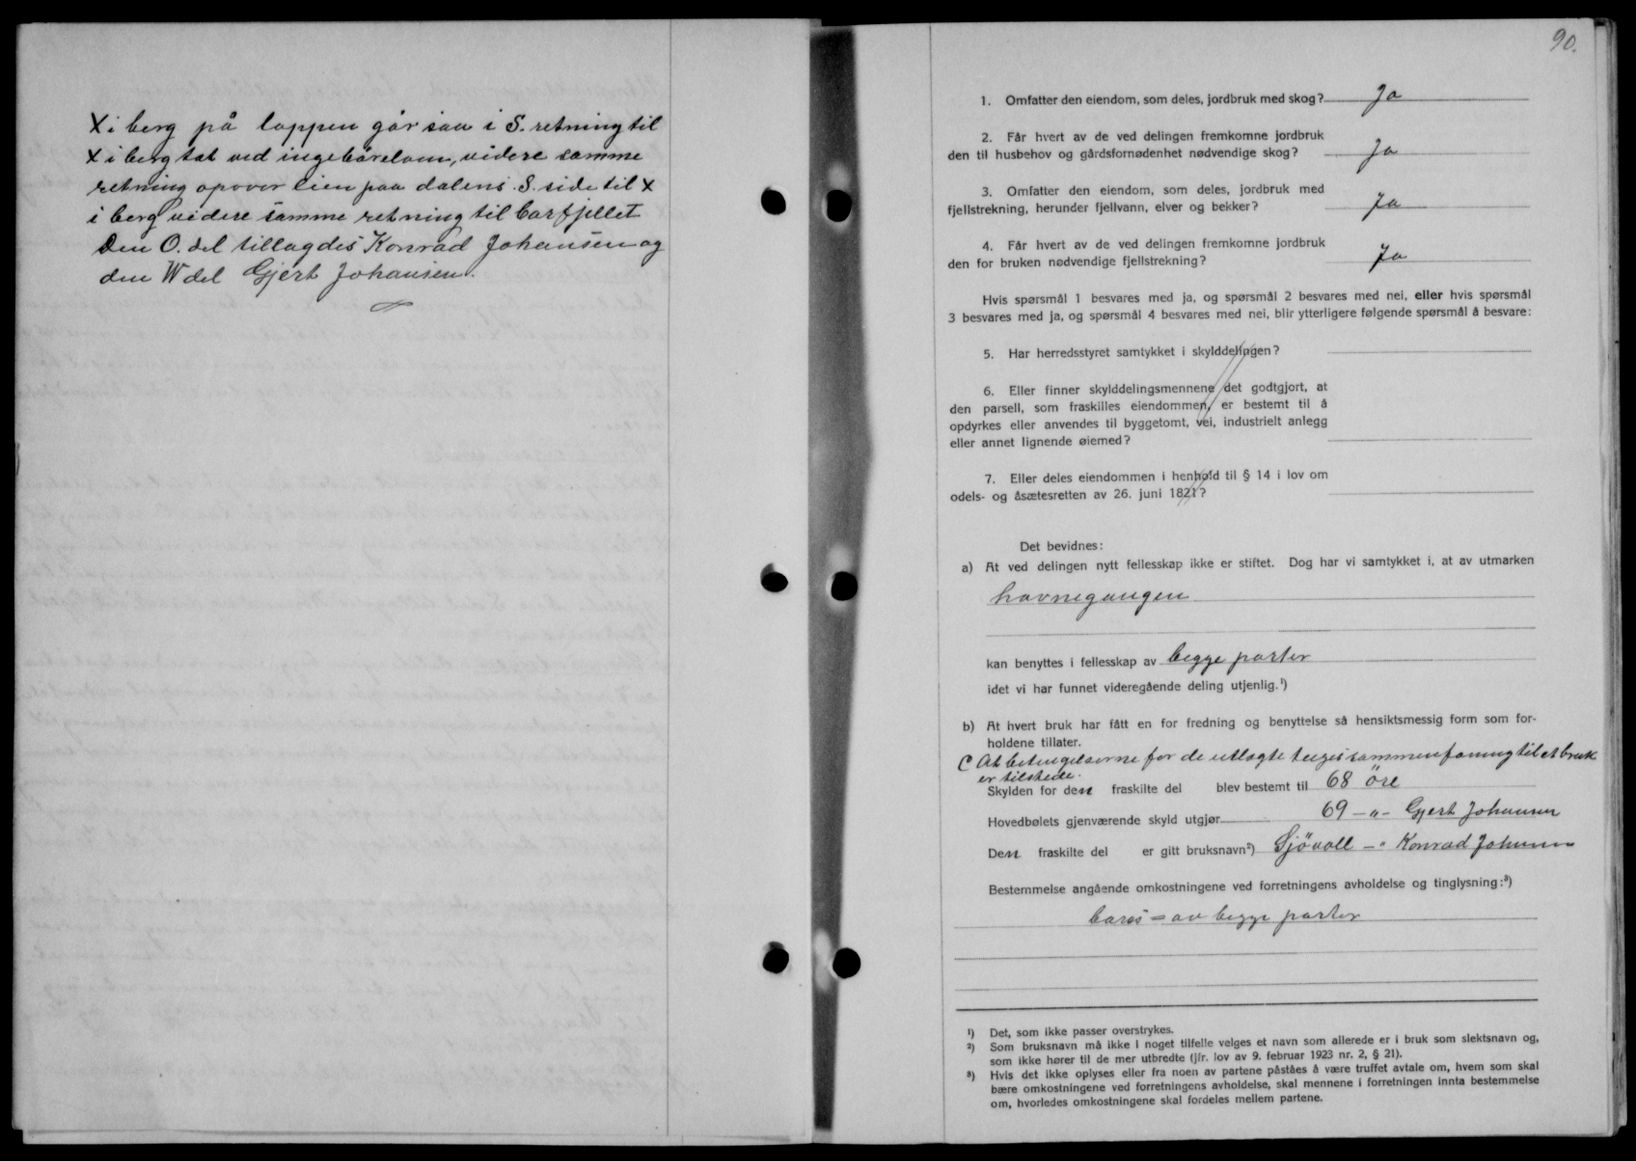 X i berg på loppen går saa i S. retning til
X i berg tat ved ingebårelven, videre samme
retning opover lien paa dalens S. side til X
i berg videre samme retning til barfjellet
Den O. del tillagdes Konrad Johansen og
den W del Gjert Johansen.
90.
1. Omfatter den eiendom, som deles, jordbruk med skog? Ja
2. Får hvert av de ved delingen fremkomne jordbruk
den til husbehov og gårdsfornødenhet nødvendige skog? Ja
3. Omfatter den eiendom, som deles, jordbruk med
fjellstrekning, herunder fjellvann, elver og bekker? Ja
4. Får hvert av de ved delingen fremkomne jordbruk
den for bruken nødvendige fjellstrekning? Ja
Hvis spørsmål 1 besvares med ja, og spørsmål 2 besvares med nei, eller hvis spørsmål
3 besvares med ja, og spørsmål 4 besvares med nei, blir ytterligere følgende spørsmål å besvare:
5. Har herredsstyret samtykket i skylddelingen?
6. Eller finner skylddelingsmennene det godtgjort, at
den parsell, som fraskilles eiendommen, er bestemt til å
opdyrkes eller anvendes til byggetomt, vei, industrielt anlegg
eller annet lignende øiemed?
7. Eller deles eiendommen i henhold til § 14 i lov om
odels- og åsætesretten av 26. juni 1821?
Det bevidnes:
a) At ved delingen nytt fellesskap ikke er stiftet. Dog har vi samtykket i, at av utmarken
havnegangen
kan benyttes i fellesskap av begge parter
idet vi har funnet videregående deling utjenlig.¹)
b) At hvert bruk har fått en for fredning og benyttelse så hensiktsmessig form som for-
holdene tillater.
C At betingelserne for de utlagte teiges sammenføining til et bruk
er tilstede.
Skylden for den fraskilte del blev bestemt til 68 öre
Hovedbølets gjenværende skyld utgjør 69 -"- Gjert Johansen
Den fraskilte del er gitt bruksnavn²) Sjövoll -" Konrad Johansen
Bestemmelse angående omkostningene ved forretningens avholdelse og tinglysning:³)
bæres = av begge parter
¹) Det, som ikke passer overstrykes.
²) Som bruksnavn må ikke i noget tilfelle velges et navn som allerede er i bruk som slektsnavn og,
som ikke hører til de mer utbredte (jfr. lov av 9. februar 1923 nr. 2, § 21).
³) Hvis det ikke oplyses eller fra noen av partene påståes å være truffet avtale om, hvem som skal
bære omkostningene ved forretningens avholdelse, skal mennene i forretningen innta bestemmelse
om, hvorledes omkostningene skal fordeles mellem partene.